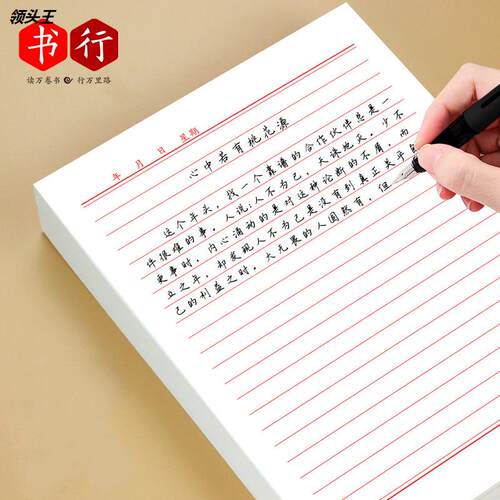 领头王
书行
读万卷书 行万里路
年 月 日 星期
心中若有桃花源
这个年头，找一个靠谱的合作伙伴总是一
件很难的事。人说：人不为己，天诛地灭。少不
更事时，内心涌动的是对这种论断的不屑，而
立之年，却发现人不为己是没有到真正关乎自
己的利益之时。大无畏的人固然有，但